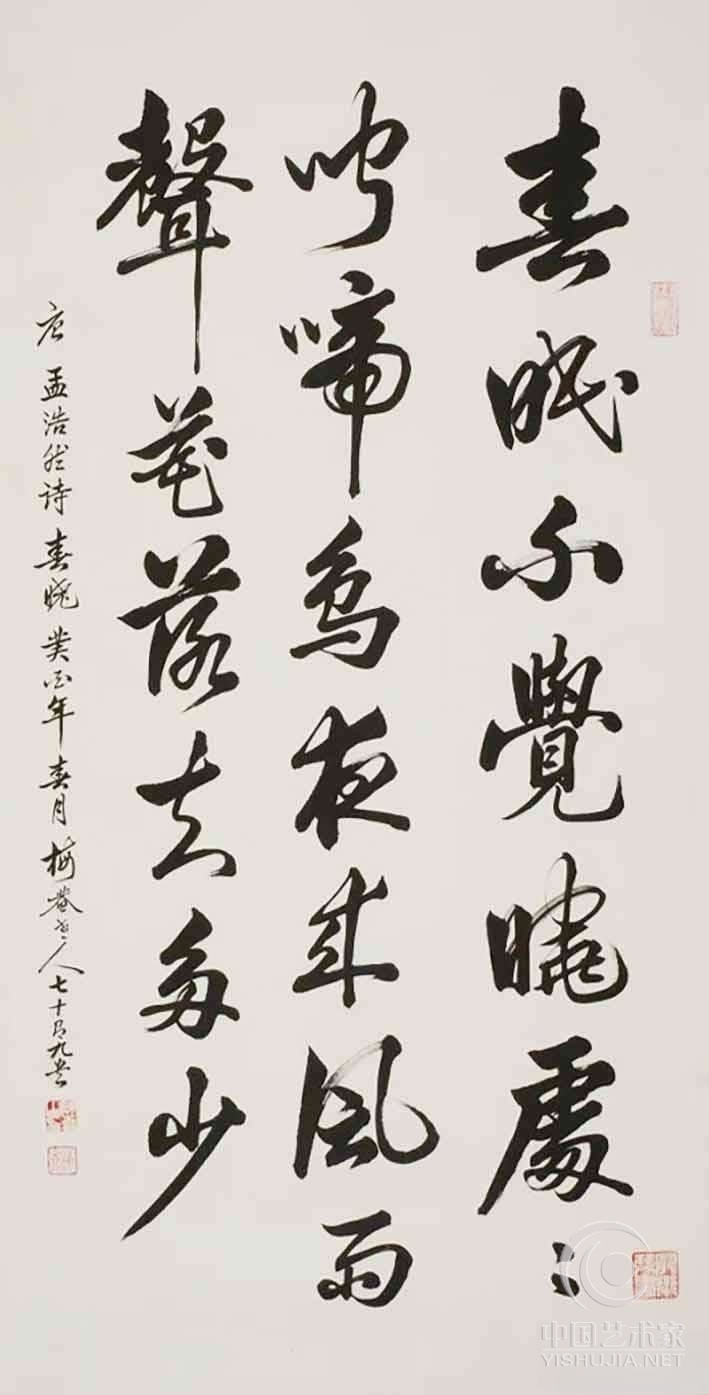 春眠不覺曉處〻
聞啼鳥夜來風雨
聲花落知多少
唐 孟浩然诗 春曉 癸酉年 春月 梅菴老人 七十有九書
中国艺术家
YISHUJIA.NET